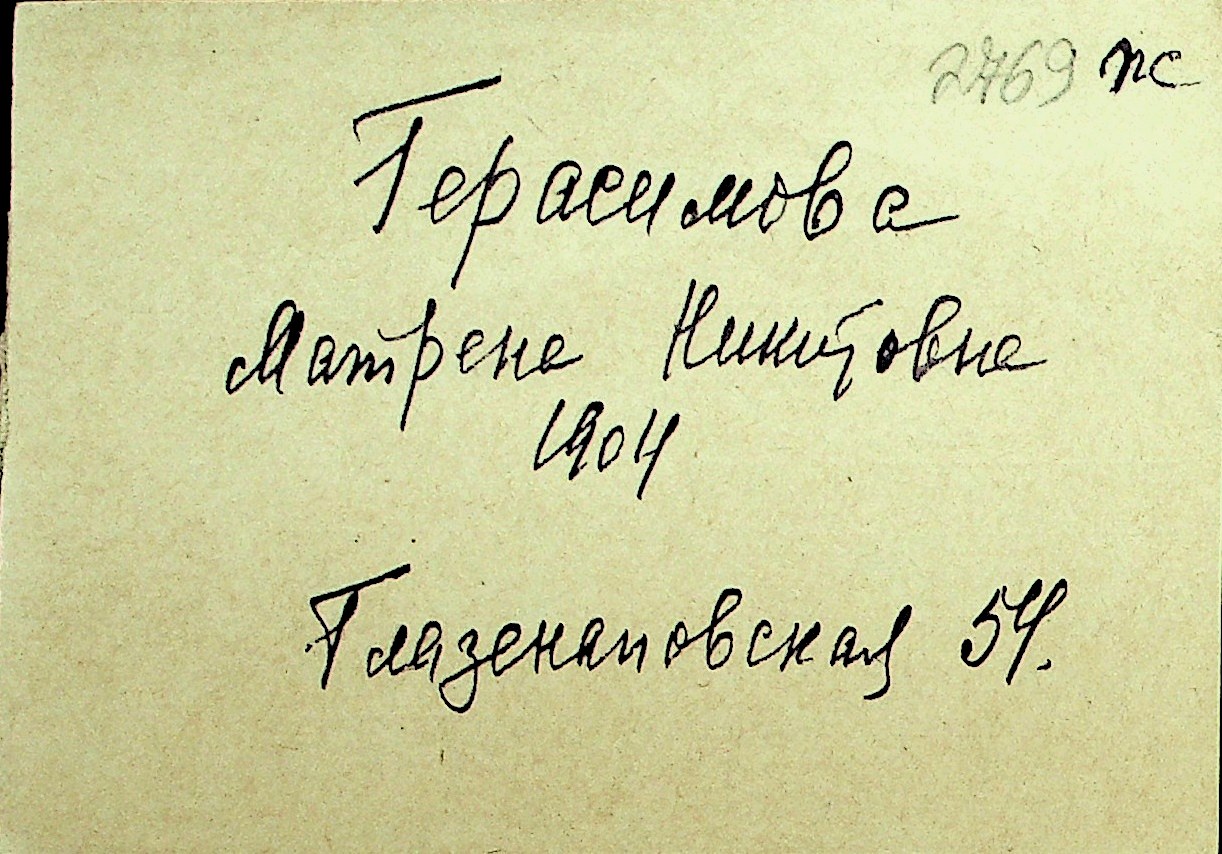 2769 пс
Герасимова
Матрена Никитовна
1904
Глазенаповская 54.